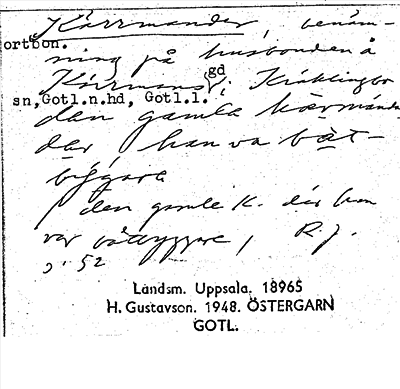 Kärrmander, benäm-
ortbön.
ning på husbonden å
Kärrmans gd i Kräklingbo
sn, Gotl.n.hd, Gotl.l.
den gamla kärmänd-
der, han va båt-
byggare
/ den gamle K. där han
var båtbyggare / R.J.
52
Landsm. Uppsala. 18965
H. Gustavson. 1948. ÖSTERGARN
GOTL.